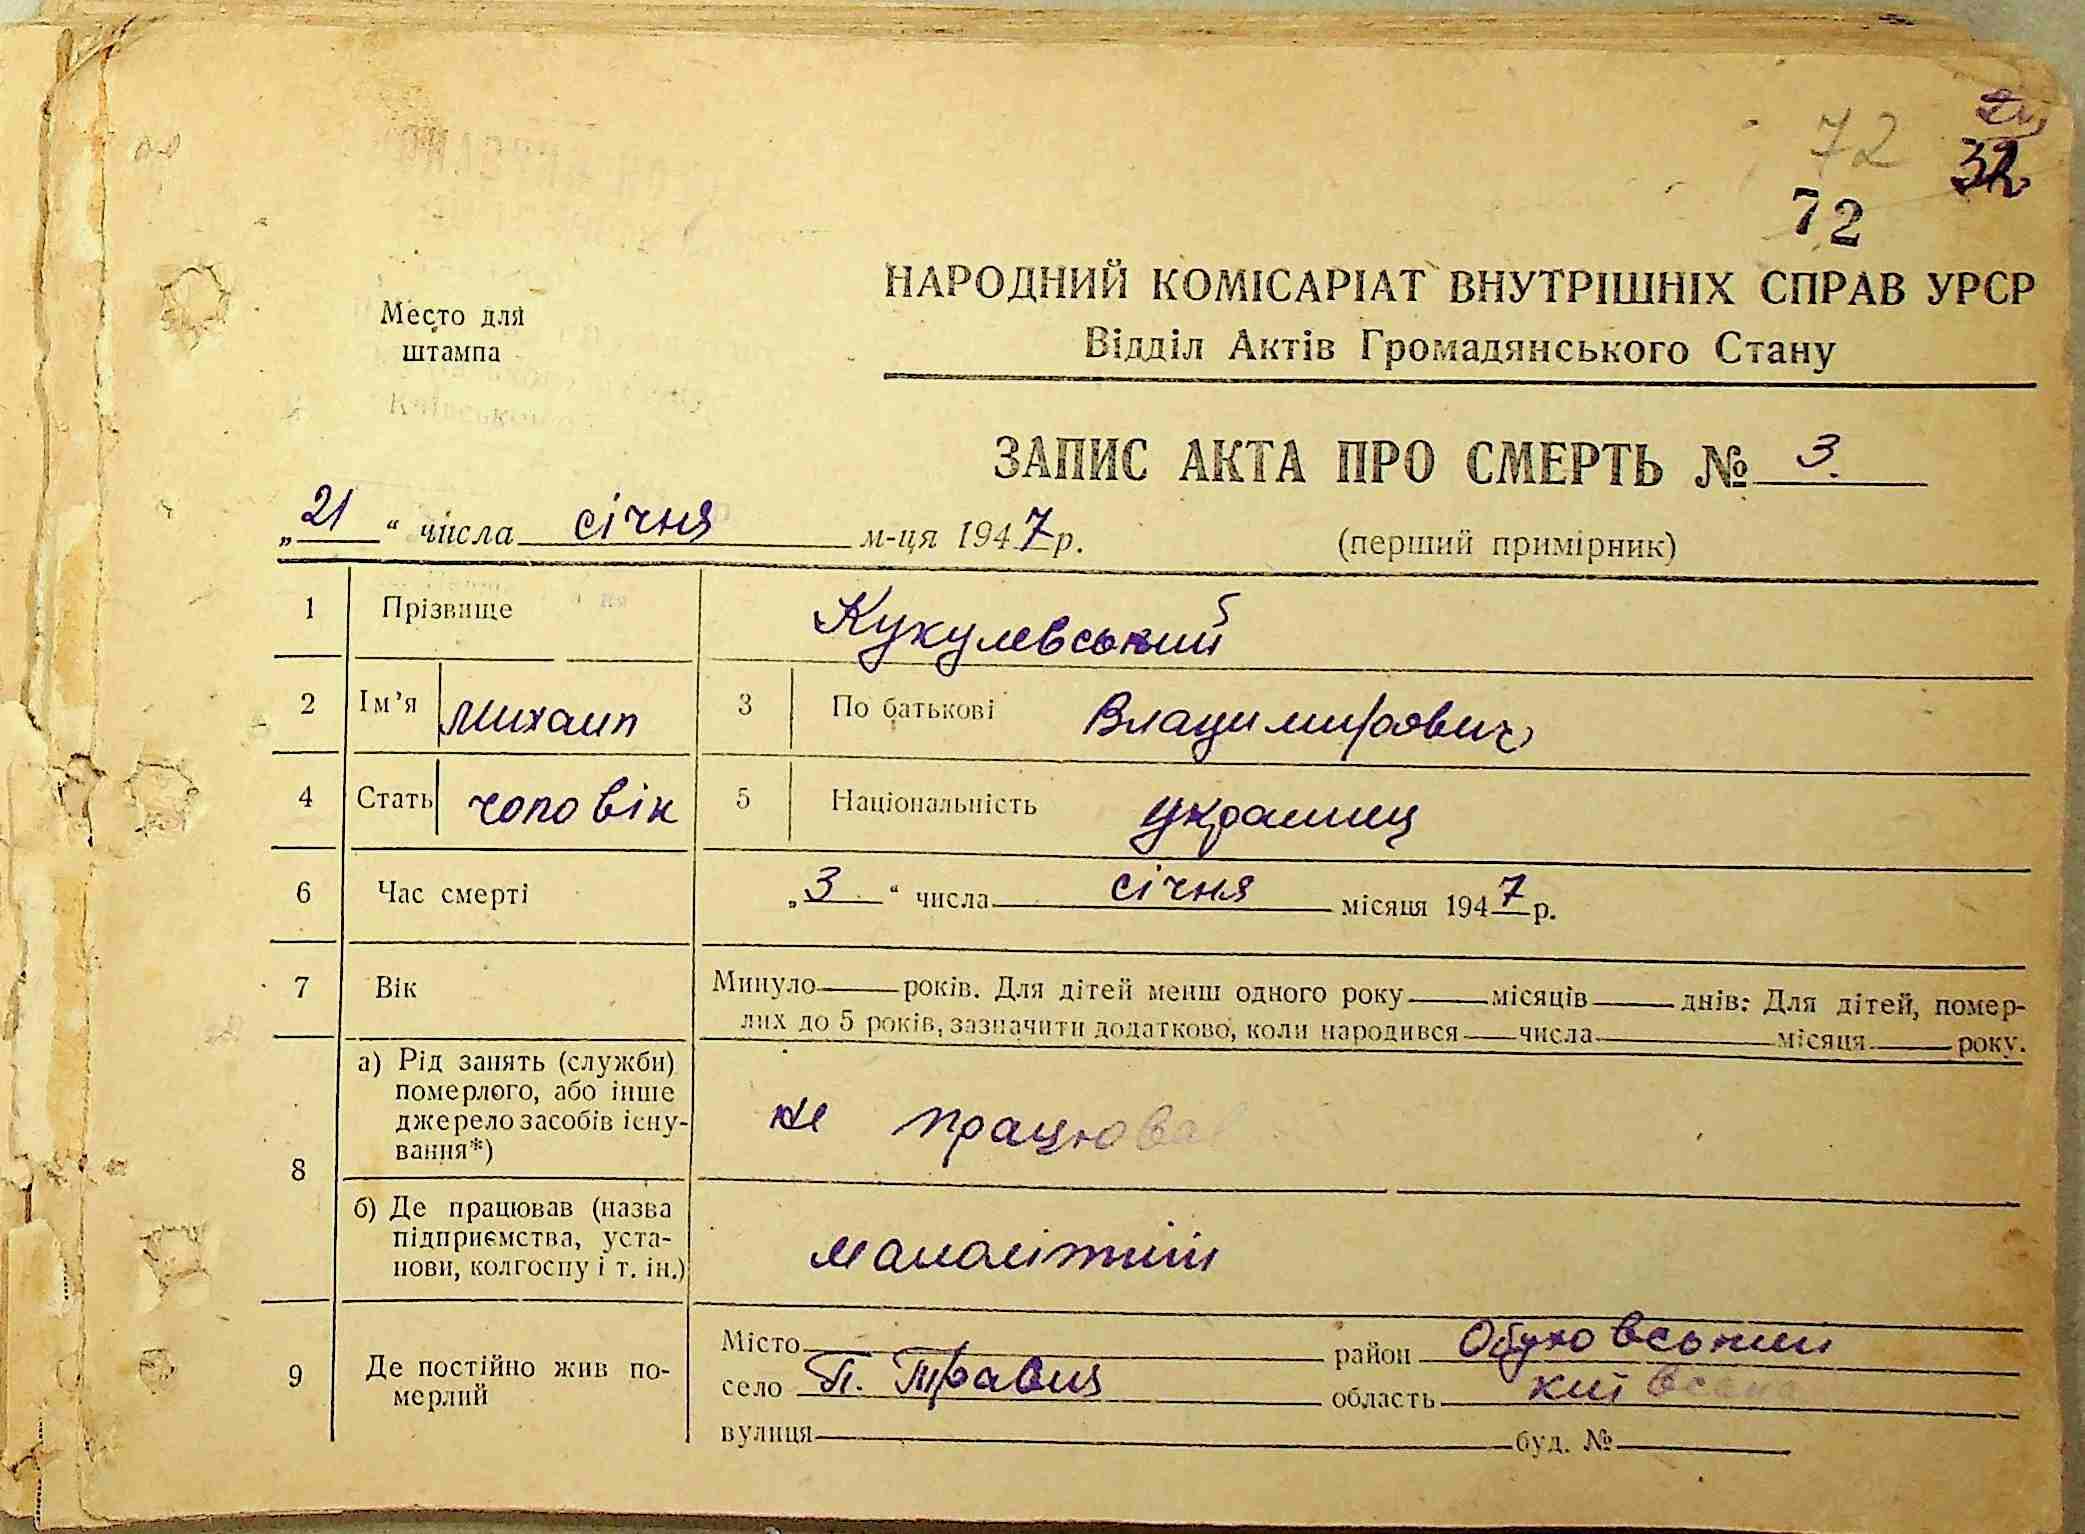 72
32
72
Место для
штампа
НАРОДНИЙ КОМІСАРІАТ ВНУТРІШНІХ СПРАВ УРСР
Відділ Актів Громадянського Стану
ЗАПИС АКТА ПРО СМЕРТЬ № 3.
„21“ числа січня м-ця 1947 р.
(перший примірник)
1 Прізвище Кукулевський
2 Ім’я Михаил 3 По батькові Владимирович
4 Стать чоловік 5 Національність украинец
6 Час смерті „3“ числа січня місяця 1947 р.
7 Вік Минуло років. Для дітей менш одного року місяців днів: Для дітей, помер-
лих до 5 років, зазначити додатково, коли народився числа місяця року.
8 а) Рід занять (служби)
померлого, або інше
джерело засобів існу-
вання*)
не працював
б) Де працював (назва
підприємства, уста-
нови, колгоспу і т. ін.)
малолітній
9 Де постійно жив по-
мерлий
Місто район Обуховський
село П. Травня область київська
вулиця буд. №